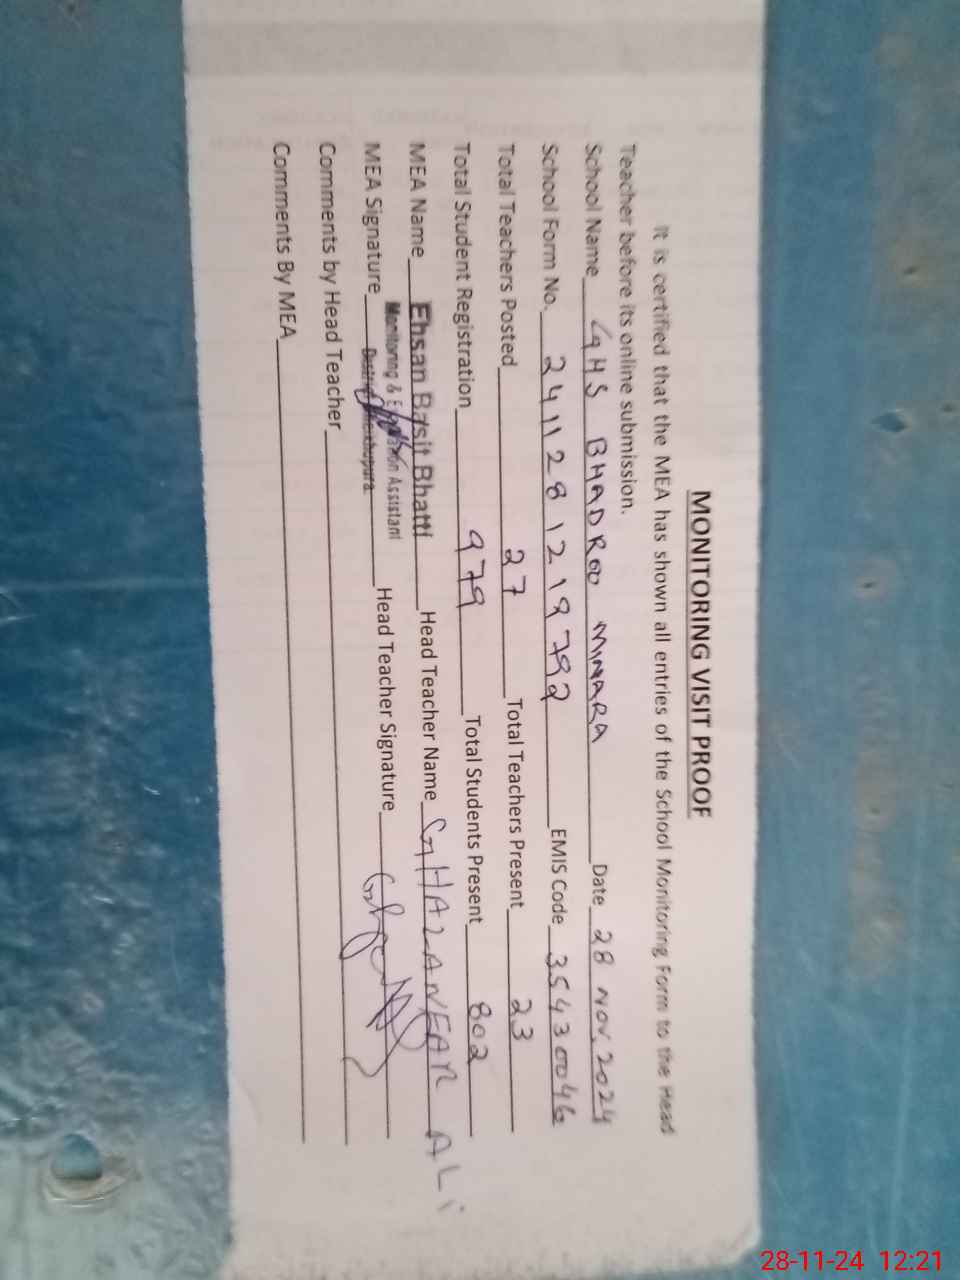 MONITORING VISIT PROOF
It is certified that the MEA has shown all entries of the School Monitoring Form to the Head
Teacher before its online submission.
School Name GHS BHADROO MINARA Date 28 NOV. 2024
School Form No. 2411281219792 EMIS Code 35430046
Total Teachers Posted 27 Total Teachers Present 23
Total Student Registration 979 Total Students Present 802
MEA Name Ehsan Basit Bhatti Head Teacher Name GHAZANFAR ALI
Monitoring & Evaluation Assistant
MEA Signature District Sheikhupura Head Teacher Signature
Comments by Head Teacher
Comments By MEA
28-11-24 12:21